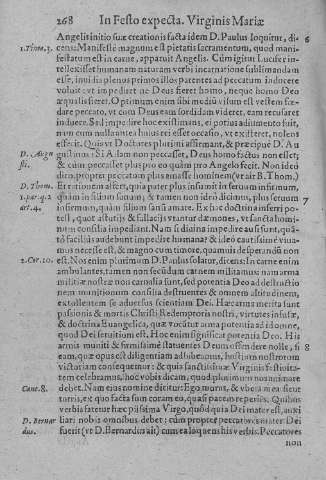 268 In Festo expecta. Virginis Mariæ
Angelis initio suæ creationis facta idem D. Paulus loquitur, di- 6
1. Thom. 3. cens: Manifestè magnum est pietatis sacramentum, quod mani-
festatum est in carne, apparuit Angelis. Cùm igitur Lucifer in-
tellexisset humanam naturam verbi incarnatione sublimandam
esse, inuidia plenus primos parentes ad peccatum inducere
voluit: vt impediret ne Deus fieret homo, neque homo Deo
æqualis fieret. Optimum enim sibi modū visum est vestem fœ-
dare peccato, vt cum Deus eam sordidam videret, eam recusaret
induere. Sed impedire hoc existimans, ei potius adiumento fuit,
nam cum nulla antea huius rei esset occasio, vt existeret, nolens
effecit. Quis vt Doctores plurimi affirmant, & præcipuè D. Au
D. Augu gustinus: Si Adam non peccasset, Deus homo factus non esset:
sti. & cùm peccasset plus pro eo quàm pro Angelo fecit. Non ideò
dico, propter peccatum plus amasse hominem (vt ait B. Thom.)
D. Thom. Et rationem affert, quia pater plus insumit in seruum infirmum,
1. par. q. 2 quàm in filium sanum; & tamen non ideò dicimus, plus seruum 7
art. 4. infirmum, quàm filium sanū amare. Ex hac doctrina inferri po-
test, quot astutijs & fallacijs vtantur dæmones, vt sancta homi-
num consilia impediant. Nam si diuina impedire ausi sunt, quā-
tò facilius audebunt impedire humana? & ideò cautissimè viua-
mus necesse est, & magno cum timore, quamuis desperandū non
2. Cor. 10. est. Nos enim plurimum D. Paulus solatur, dicens: In carne enim
ambulantes, tamen non secūdum carnem militamus: nam arma
militiæ nostræ non carnalia sunt, sed potentia Deo ad destructio
nem munitionum consilia destruentes & omnem altitudinem,
extollentem se aduersus scientiam Dei. Hæc arma merita sunt
passionis & mortis Christi Redemptoris nostri, virtutes infusæ,
& doctrina Euangelica, quæ vocātur arma potentia ad id omne,
quod Dei seruitium est. Hoc enim significat potentia Deo. His
armis muniti & firmissimè statuentes Deum offendere nolle, si 8
eam, quæ opus est diligentiam adhibeamus, hostium nostrorum
victoriam consequemur: & quia sanctissimæ Virginis festiuita-
tem celebramus, hac vobis dicam, quod plurimum nos animare
Cant. 8. debet. Nam eius nomine dicitur: Ego murus, & vbera mea sicut
turris, ex quo facta sum coram eo, quasi pacem reperiens. Quibus
verbis fatetur hæc pijssima Virgo, quòd quia Dei mater est, auxi
D. Bernar liari nobis omnibus debet: cùm propter peccatores mater Dei
dus. fuerit (vt D. Bernardus ait) cum ea loquens his verbis: Peccatores
non